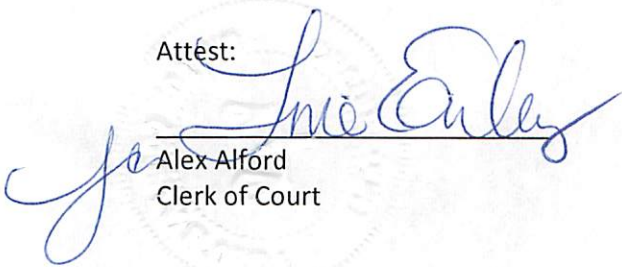 Attest:
for
Alex Alford
Clerk of Court